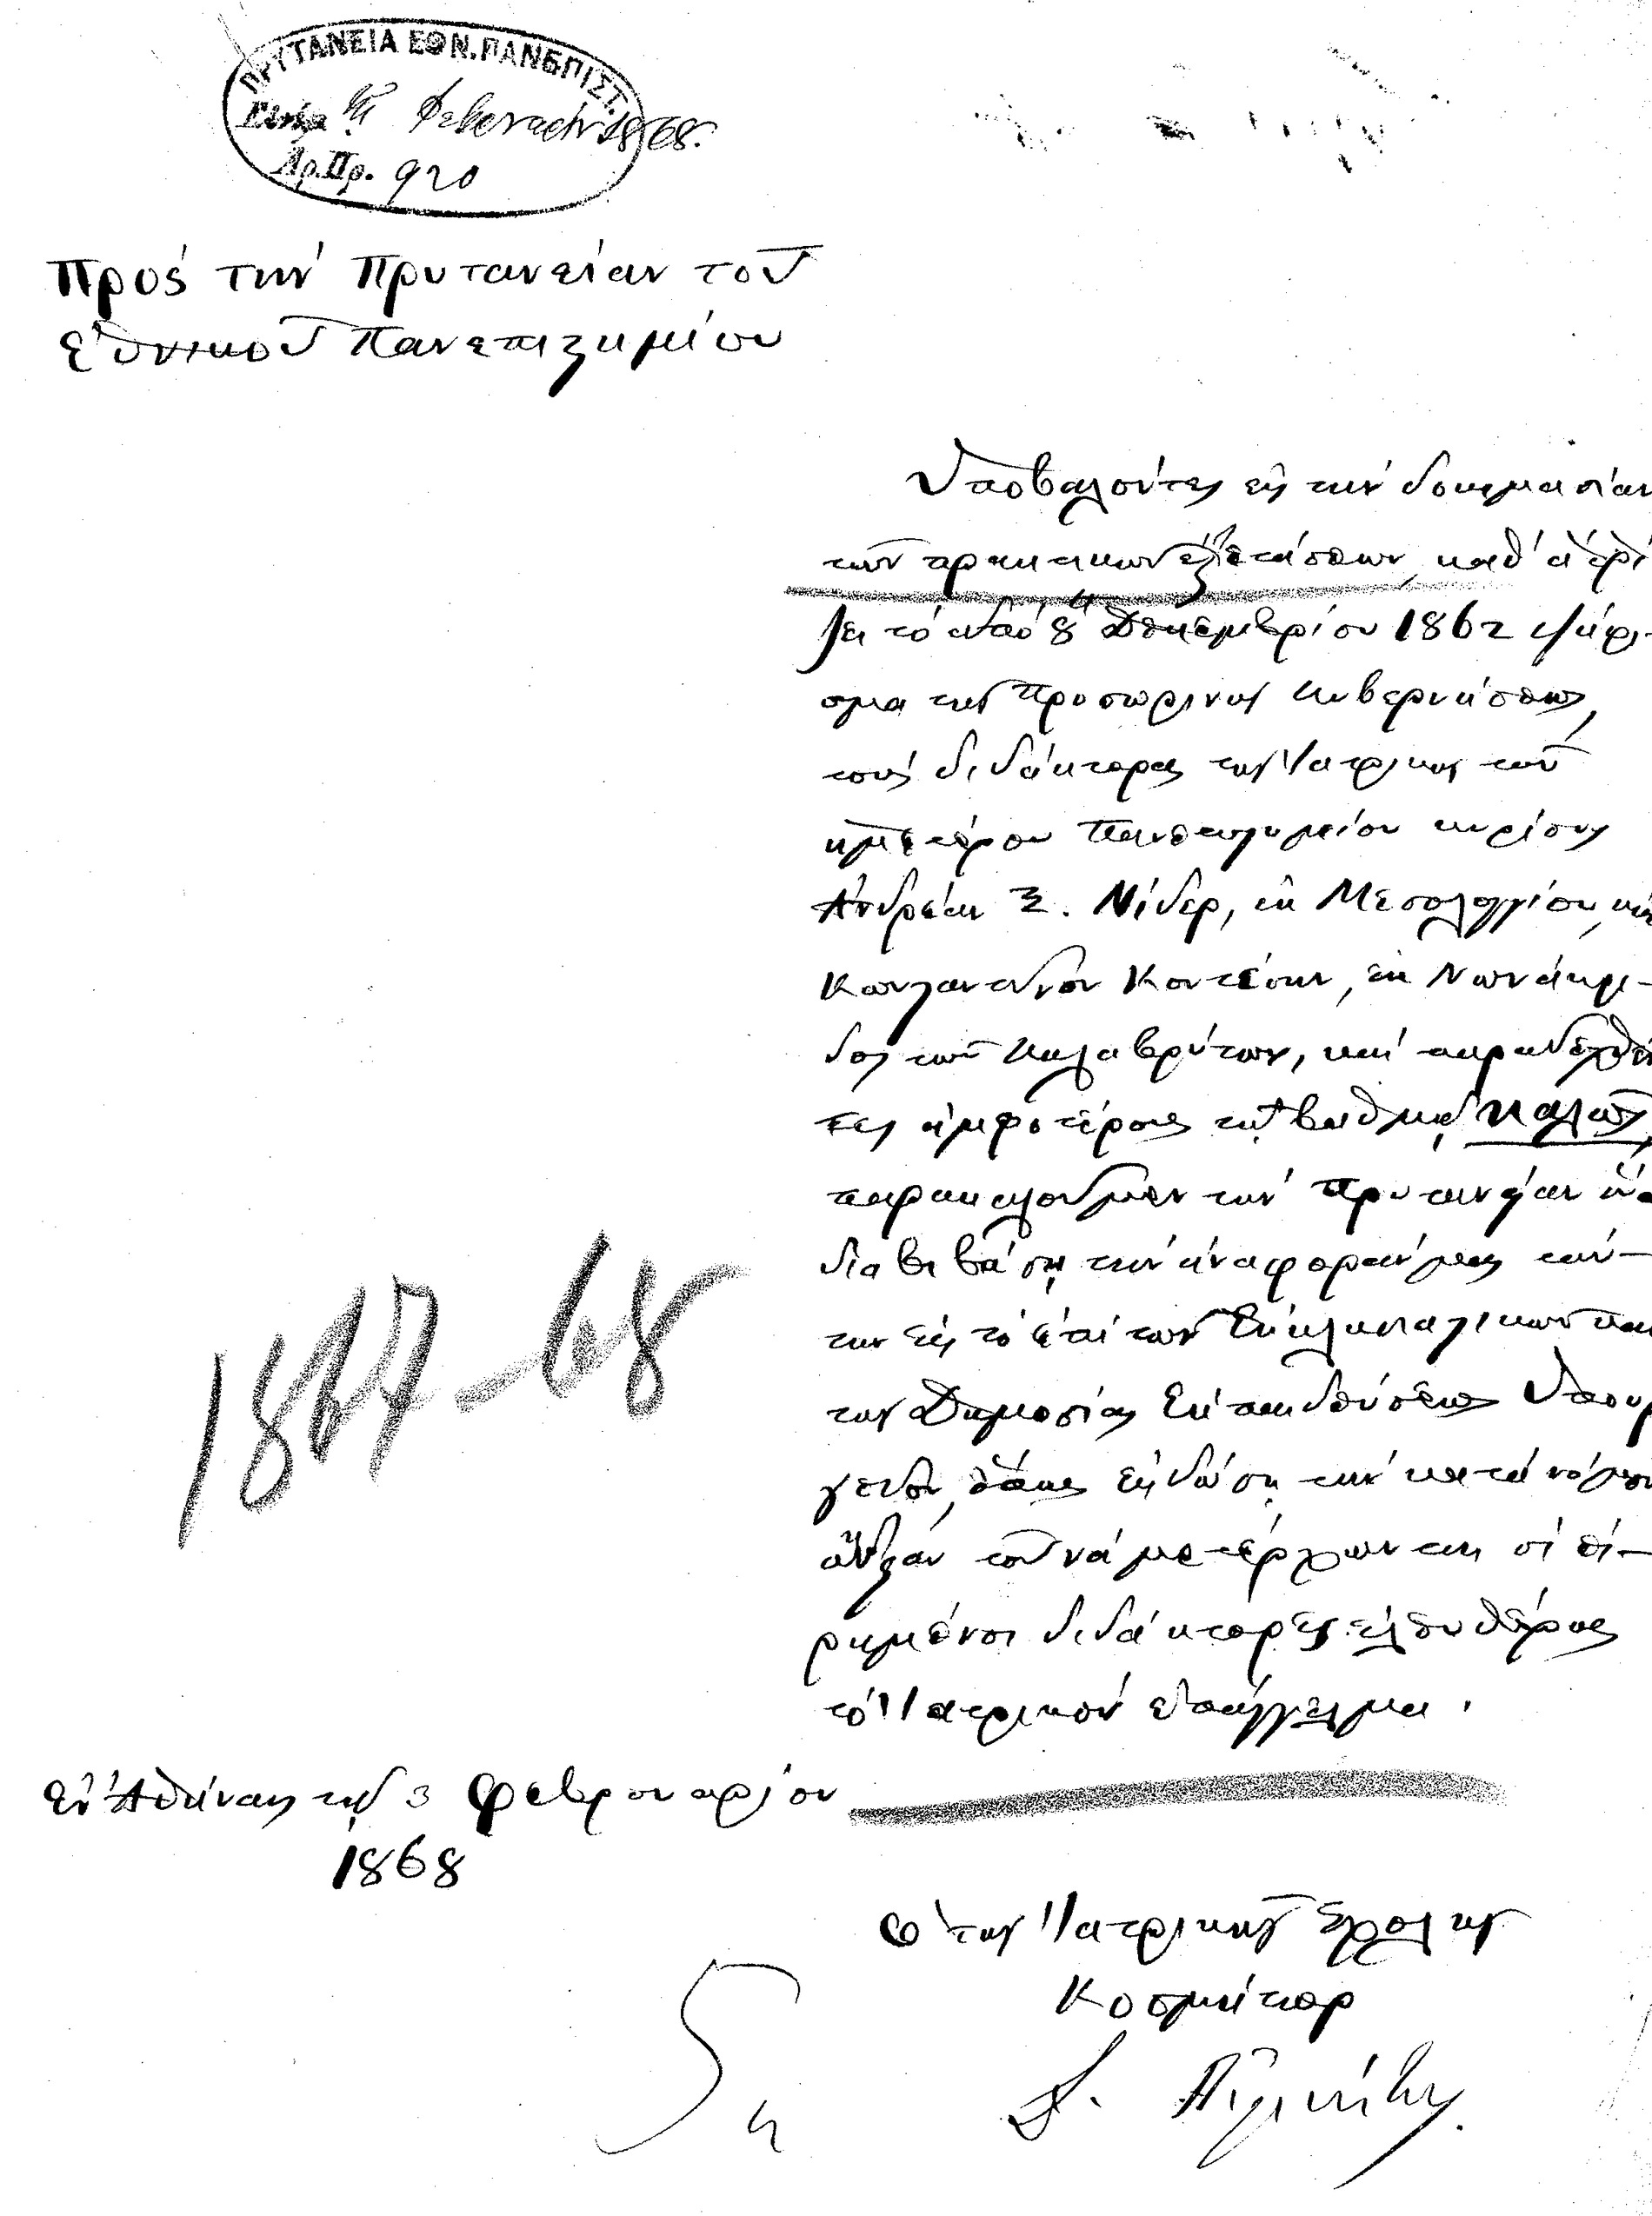 ΠΡΥΤΑΝΕΙΑ ΕΘΝ. ΠΑΝΕΠΙΣΤ.
Φεβρουαρίου 1868.
Αρ. Πρ. 920
Πρός τήν Πρυτανείαν τοῦ
ἐθνικοῦ Πανεπιστημίου
Ὑποβαλόντες εἰς τήν δοκιμασίαν
τῶν πρακτικῶν ἐξετάσεων, καθ' ἅ ὁρί
ζει τό ἀπό 8 Δεκεμβρίου 1862 ψήφι-
σμα τῆς Προσωρινῆς Κυβερνήσεως,
τούς διδάκτορας τῆς Ἰατρικῆς τοῦ
ἡμετέρου Πανεπιστημείου κυρίους
Ἀνδρέαν Ξ. Νίδερ, ἐκ Μεσολογγίου, καί
Κωνσταντῖνον Κοντέσην, ἐκ Νωνάκρι-
δος τῶν Καλαβρύτων, καί παραδεχθέν
τες ἀμφοτέρους τῷ βαθμῷ καλῶς,
παρακαλοῦμεν τήν Πρυτανείαν ἵνα
διαβιβάσῃ τήν ἀναφοράν μας ταύ-
την εἰς τό ἐπί τῶν Ἐκκλησιαστικῶν καί
τῆς Δημοσίας Ἐκπαιδεύσεως Ὑπουρ
γεῖον, ὅπως ἐκδώσῃ τήν κατά νόμον
ἄδειαν τοῦ νά μετέρχωνται οἱ εἰ-
ρημένοι διδάκτορες ἐλευθέρως
τό Ἰατρικόν ἐπάγγελμα.
1867-68
Ἐν Ἀθήναις τῇ 3 Φεβρουαρίου
1868
Ὁ τῆς Ἰατρικῆς Σχολῆς
Κοσμήτωρ
Δ. Αἰγινήτης